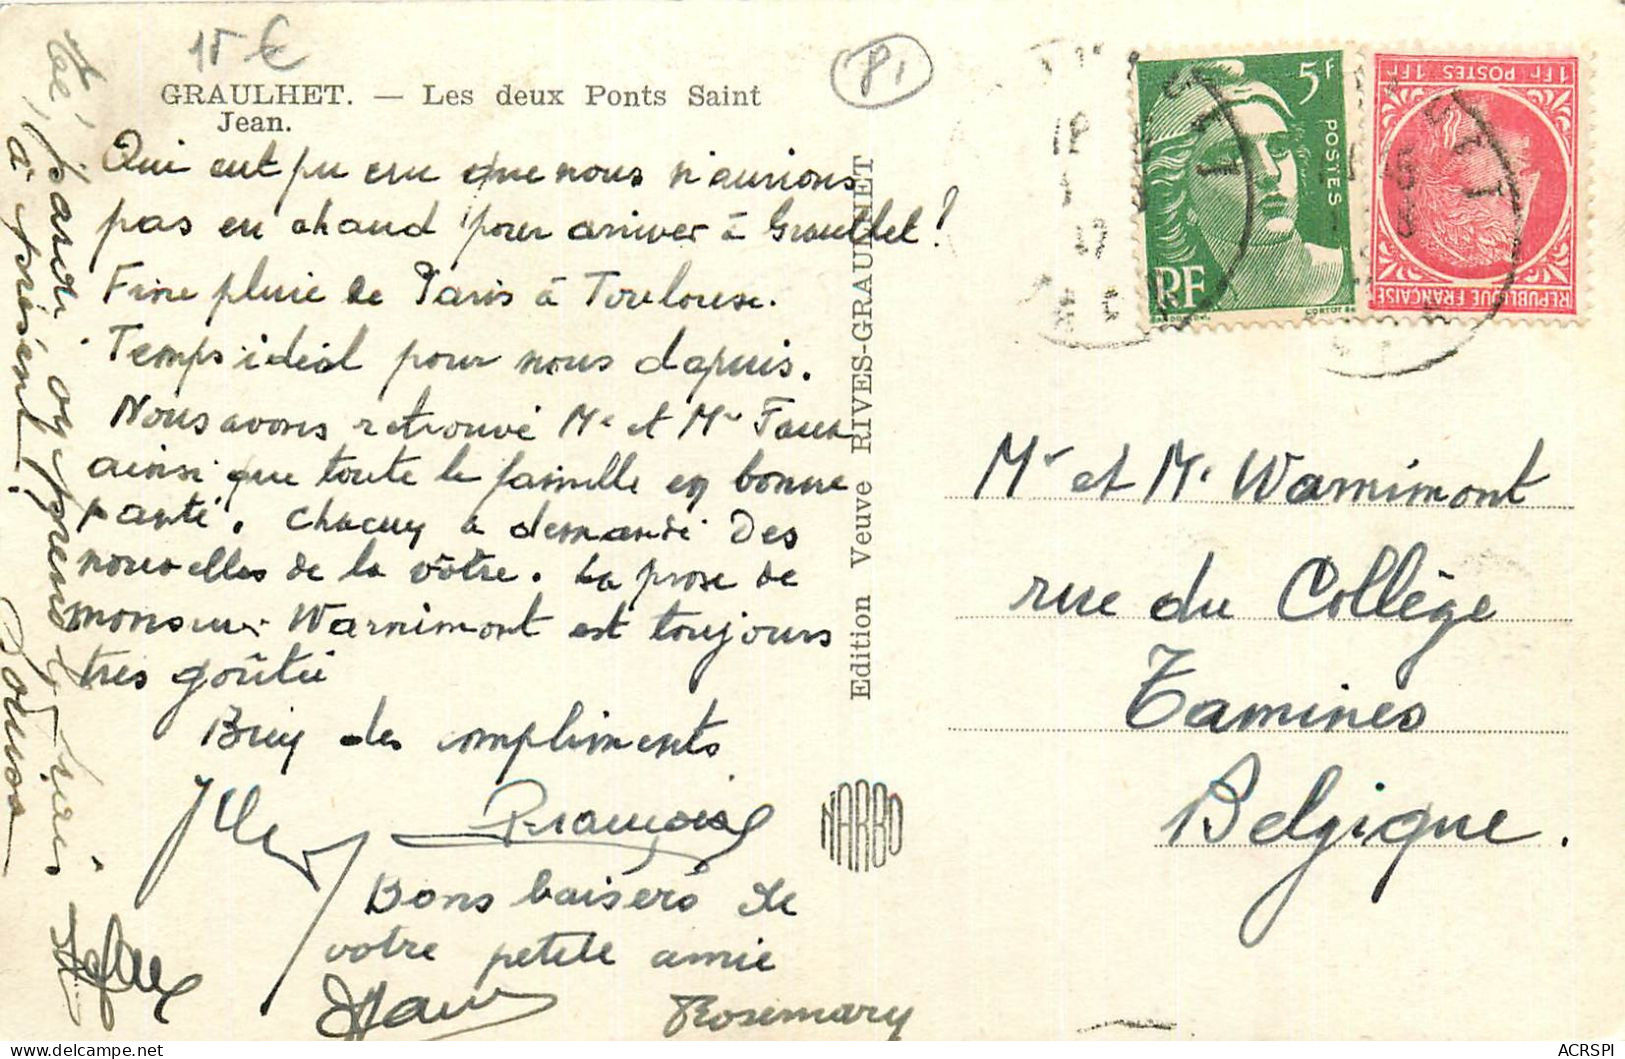 15 €
GRAULHET. — Les deux Ponts Saint
Jean.
Qui eut pu cru que nous n'aurions
pas eu chaud pour arriver à Graulhet!
Fine pluie de Paris à Toulouse.
Temps idéal pour nous depuis.
Nous avons retrouvé Me et Mr Faux
ainsi que toute la famille en bonne
santé. Chacun a demandé Des
nouvelles de la vôtre. La prose de
monsieur Warnimont est toujours
très goûtée
Bien des compliments
Françoise
Bons baisers de
votre petite amie
Rosemary
à présent!
Edition Veuve RIVES-GRAUNNET
NARBO
81
5F
POSTES
RF
1Fr POSTES 1Fr
REPUBLIQUE FRANÇAISE
Mr et Me Warnimont
rue du Collège
Tamines
Belgique.
ACRSPI